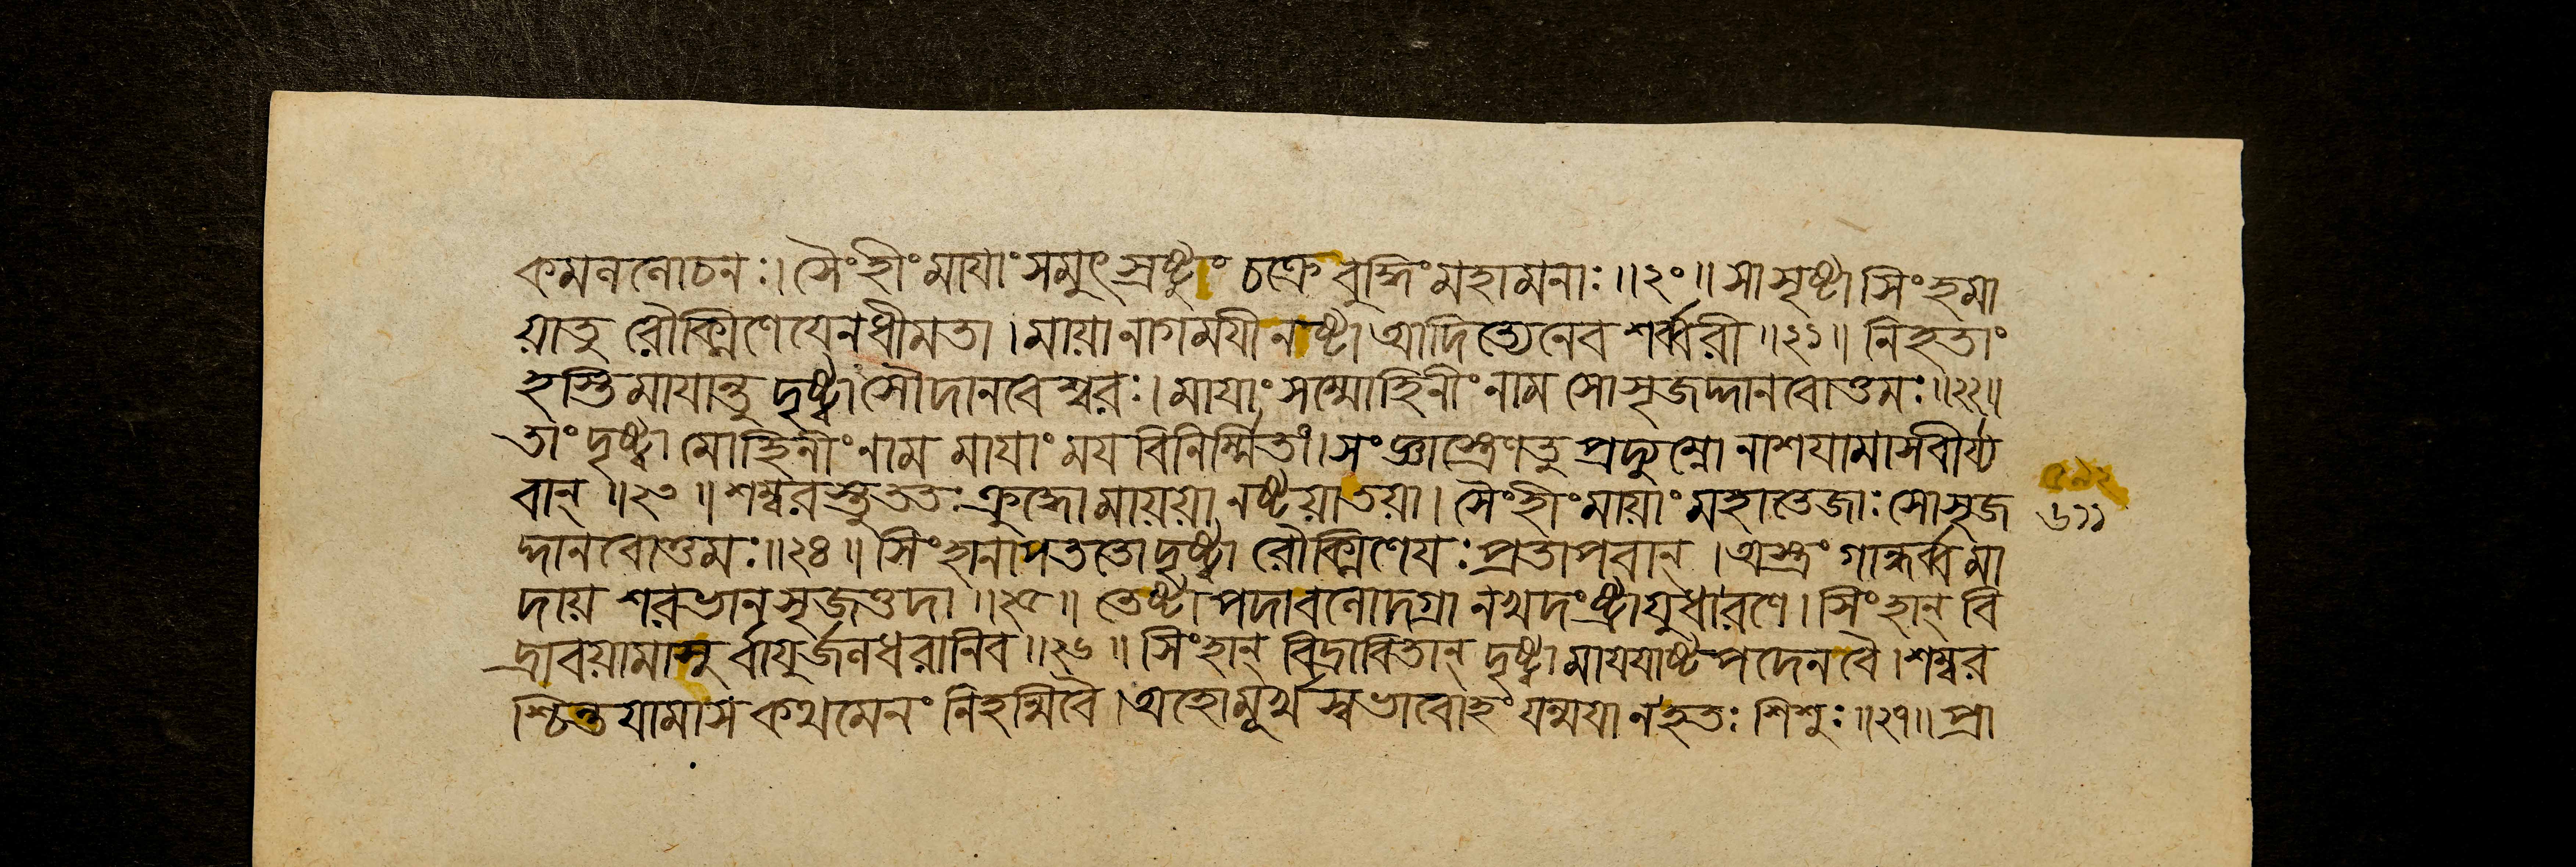 কমললোচনঃ। সৈংহীং মায়াং সমুৎস্রষ্টুং চক্রে বুদ্ধিং মহামনাঃ॥২০॥ সা সৃষ্টা সিংহমা
য়া তু রৌক্মিণেয়েন ধীমতা। মায়া নাগময়ী নষ্টা আদিত্যেনেব শর্ব্বরী॥২১॥ নিহতাং
হস্তিমায়ান্তু দৃষ্ট্বা সৌ দানবেশ্বরঃ। মায়াং সম্মোহিনীং নাম সোসৃজদ্দানবোত্তমঃ॥২২॥
তাং দৃষ্ট্বা মোহিনীং নাম মায়াং ময়বিনির্ম্মিতাং। সংজ্ঞাস্ত্রেণ তু প্রদ্যুম্নো নাশয়ামাস বীর্য্য
বান্॥২৩॥ শম্বরস্তু ততঃ ক্রুদ্ধো মায়য়া নষ্টয়া তয়া। সৈংহীং মায়াং মহাতেজাঃ সোসৃজ
দ্দানবোত্তমঃ॥২৪॥ সিংহানাপততো দৃষ্ট্বা রৌক্মিণেয়ঃ প্রতাপবান্। অস্ত্রং গান্ধর্ব্বমা
দায় শরভানসৃজত্তদা॥২৫॥ তেষ্টাপদা বলোদগ্রা নখদংষ্ট্রায়ুধা রণে। সিংহান্ বি
দ্রাবয়ামাসুর্বায়ুর্জলধরানিব॥২৬॥ সিংহান্ বিদ্রাবিতান্ দৃষ্ট্বা মায়য়াষ্টপদেন বৈ। শম্বর
শ্চিন্তয়ামাস কথমেনং নিহন্মি বৈ। অহো মূর্খস্বভাবোহং যন্ময়া ন হতঃ শিশুঃ॥২৭॥ প্রা
৬১১